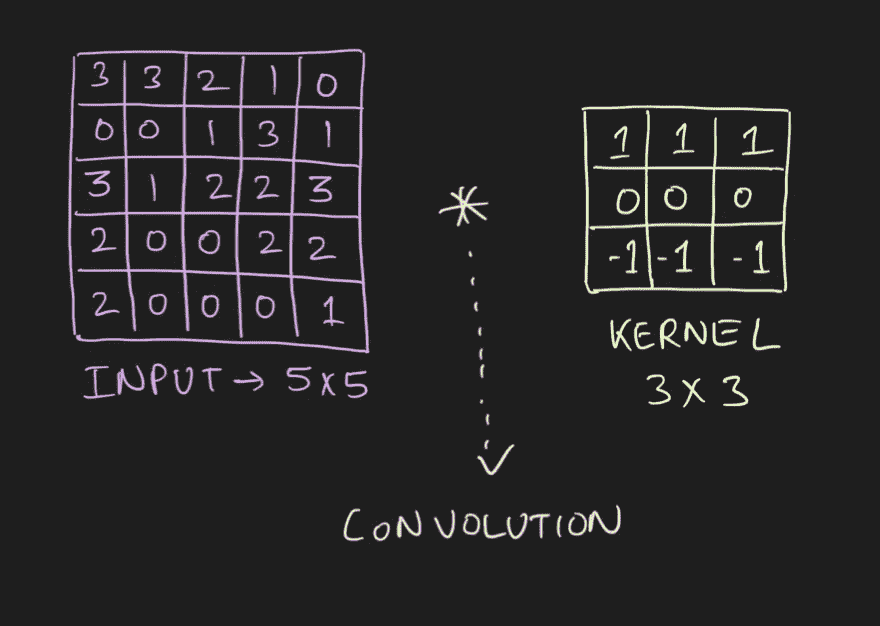 3 3 2 1 0
0 0 1 3 1
3 1 2 2 3
2 0 0 2 2
2 0 0 0 1
INPUT → 5x5
*
1 1 1
0 0 0
-1 -1 -1
KERNEL
3 x 3
CONVOLUTION